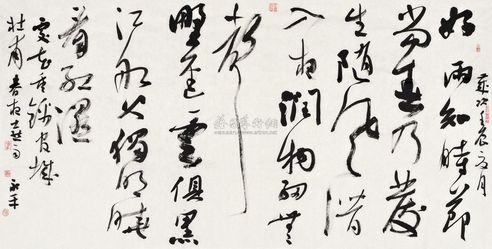 歲次壬辰月
好雨知時節
當春乃發
生随風潛
入夜潤物細無
聲
野徑雲俱黑
江船火獨明曉
看紅濕
處花重錦官城
杜甫春夜喜雨